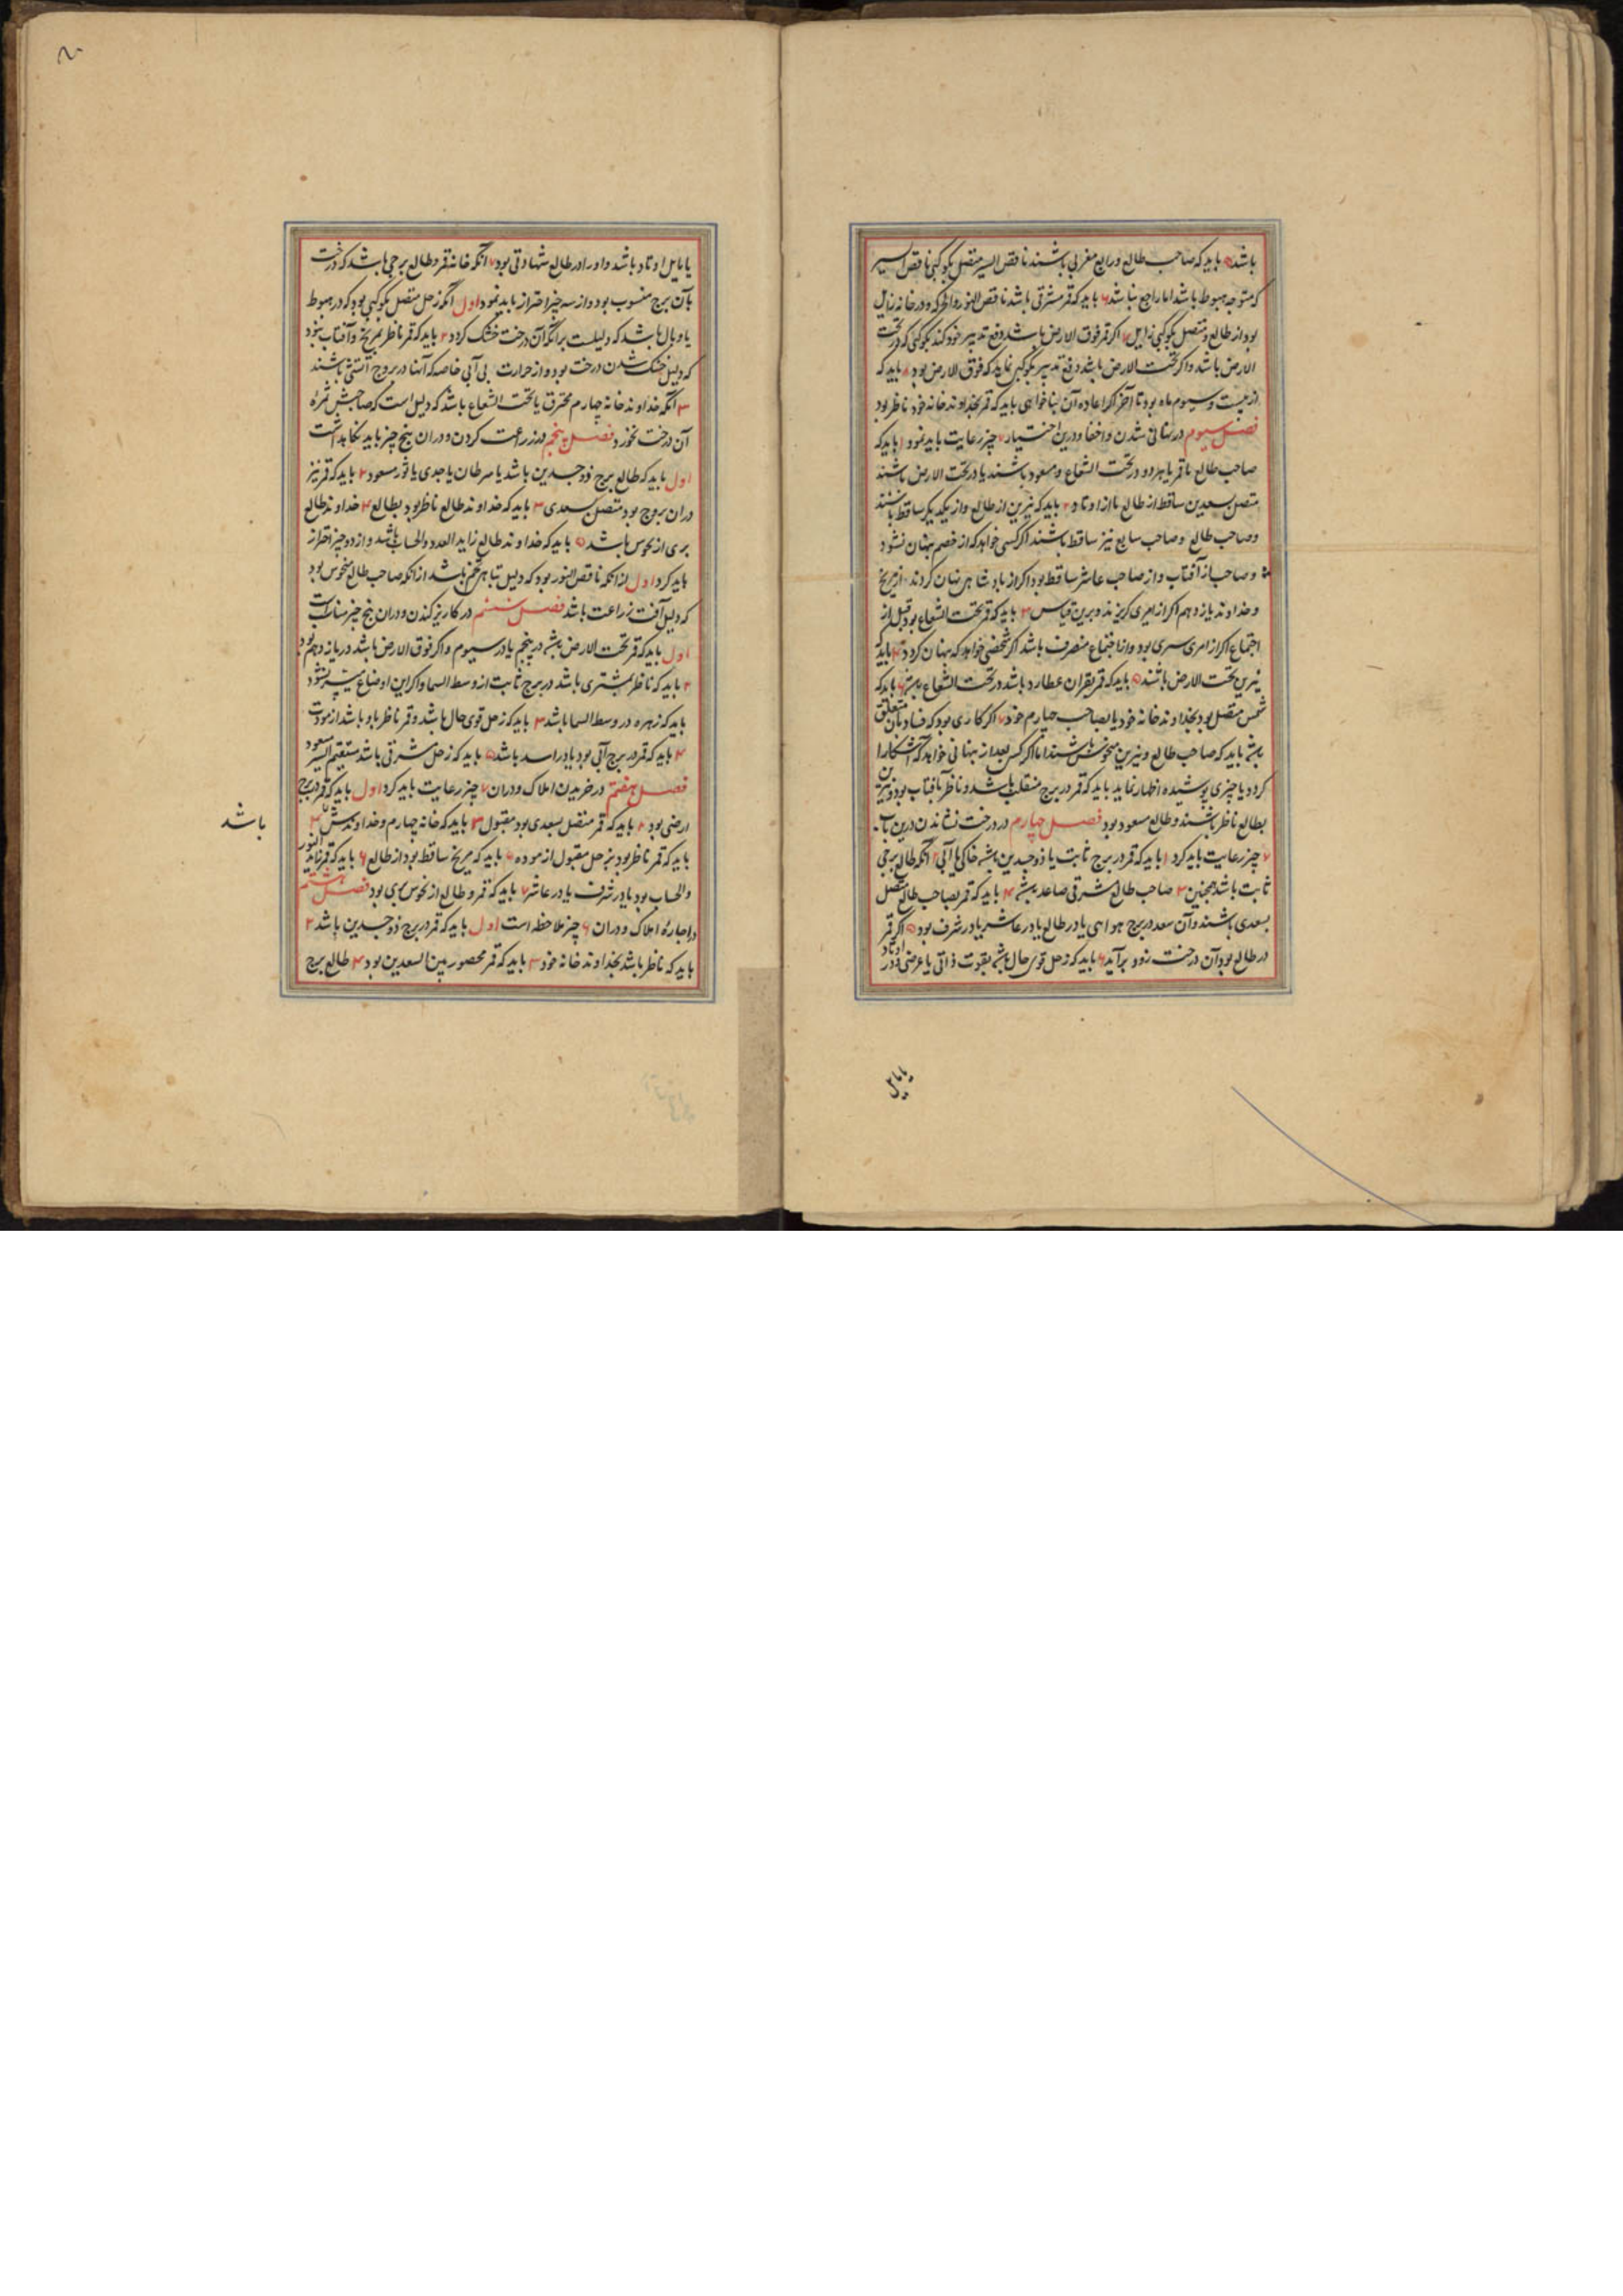 باشد ۵ باید که صاحب طالع و رابع مغربی باشند ناقص السیر متصل بکوکبی ناقص السیر
که متوجه هبوط باشد اما راجع نباشد ۶ باید که قمر مشرقی باشد ناقص النور و در خانه زایل
بود از طالع و متصل بکوکبی زایل ۷ اکر قمر فوق الارض باشد دفع تدبیر خود کند بکوکبی که در تحت
الارض باشد و اکر تحت الارض باشد دفع تدبیر بکوکبی نماید که فوق الارض بود ۸ باید که
از بیست و سیوم ماه بود تا آخر اکر اعاده آن بنا خواهی باید که قمر بخداوند خانه خود ناظر بود
فصل سیوم در نهانی شدن و اخفا و درین اختیار ۷ چیز رعایت باید نمود ۱ باید که
صاحب طالع یا قمر یا هر دو در تحت الشعاع و مسعود باشند یا در تحت الارض باشند
متصل بسعدین ساقط از طالع یا از اوتاد ۲ باید که نیرین از طالع و از یکدیکر ساقط باشند
و صاحب طالع و صاحب سابع نیز ساقط باشند اکر کسی خواهد که از خصم پنهان شود
و صاحب از آفتاب و از صاحب عاشر ساقط بود اکر از پادشاهی پنهان کردند از مریخ
و خداوند یازدهم اکر از امیری کریزند و برین قیاس ۳ باید که قمر تحت الشعاع بود قبل از
اجتماع اکر از امری سری بود و از اجتماع منصرف باشد اکر شخصی خواهد که پنهان کردد ۴ باید که
نیرین تحت الارض باشند ۵ باید که قمر بقران عطارد باشد در تحت الشعاع ۶ باید که
شمس متصل بود بخداوند خانه خود یا بصاحب چهارم خود ۷ اکر کاری بود که فساد بآن متعلق
باشد باید که صاحب طالع و نیرین منحوس باشند اما اکر کسی بعد از پنهانی خواهد که آشکارا
کردد یا چیزی پوشیده اظهار نماید باید که قمر در برج منقلب باشد و ناظر بآفتاب بود و نیرین
بطالع ناظر باشند و طالع مسعود بود فصل چهارم در درخت نشاندن درین باب
۷ چیز رعایت باید کرد ۱ باید که قمر در برج ثابت یا ذوجسدین باشد خاکی یا آبی ۲ آنکه طالع برجی
ثابت باشد همچنین ۳ صاحب طالع مشرقی صاعد باشد ۴ باید که قمر بصاحب طالع متصل
بسعدی باشند و آن سعد در برج هوایی یا در طالع یا در عاشر یا در شرف بود ۵ اکر قمر
در طالع بود آن درخت زود برآید ۶ باید که زحل قوی حال باشد بقوت ذاتی یا عرضی و در اوتاد
یا مایل
یا مایل اوتاد باشد و او را در طالع شهادتی بود ۷ آنکه خانه قمر و طالع برجی باشد که درخت
بآن برج منسوب بود و از سه چیز احتراز باید نمود اول آنکه زحل متصل بکوکبی بود که در هبوط
یا وبال باشد که دلیلست بر آنکه آن درخت خشک کردد ۲ باید که قمر ناظر بمریخ و آفتاب نبود
که دلیل خشک شدن درخت بود و از حرارت بی آبی خاصه که آنها در بروج آتشی باشند
۳ آنکه خداوند خانه چهارم محترق یا تحت الشعاع باشد که دلیل است که صاحبش ثمرهٔ
آن درخت نخورد فصل پنجم در زراعت کردن و دران پنج چیز باید نکاهداشت
اول باید که طالع برج ذوجسدین باشد یا سرطان یا جدی یا ثور مسعود ۲ باید که قمر نیز
دران بروج بود متصل بسعدی ۳ باید که خداوند طالع ناظر بود بطالع ۴ خداوند طالع
بری از نحوس باشد ۵ باید که خداوند طالع زاید العدد و الحساب باشد و از دو چیز احتراز
باید کرد اول از آنکه ناقص النور بود که دلیل تباهی تخم باشد از آنکه صاحب طالع منحوس بود
که دلیل آفت زراعت باشد فصل ششم در کاریز کندن و دران پنج چیز مناسبست
اول باید که قمر تحت الارض باشد در پنجم یا در سیوم و اکر فوق الارض باشد در یازدهم بود
۲ باید که ناظر بمشتری باشد در برج ثابت از وسط السما و اکر این اوضاع میسر نشود
باید که زهره در وسط السما باشد ۳ باید که زحل قوی حال باشد و قمر ناظر باو باشد از مودت
۴ باید که قمر در برج آبی بود یا در اسد باشد ۵ باید که زحل مشرقی باشد مستقیم السیر مسعود
فصل هفتم در خریدن املاک و دران ۷ چیز رعایت باید کرد اول باید که قمر در برج
ارضی بود ۲ باید که قمر متصل بسعدی بود مقبول ۳ باید که خانه چهارم و خداوندش
باشد
باید که قمر ناظر بود بزحل مقبول از موده ۵ باید که مریخ ساقط بود از طالع ۶ باید که قمر زاید النور
والحساب بود یا در شرف یا در عاشر ۷ باید که قمر و طالع از نحوس بری بود فصل هشتم
در اجارهٔ املاک و دران ۶ چیز ملاحظه است اول باید که قمر در برج ذوجسدین باشد ۲
باید که ناظر باشد بخداوند خانه خود ۳ باید که قمر محصور بین السعدین بود ۴ طالع برج